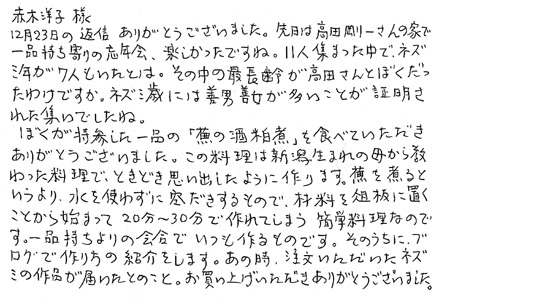 赤木洋子 様
12月23日の返信 ありがとうございました。先日は高田剛一さんの家で
一品持ち寄りの忘年会、楽しかったですね。11人集まった中で、ネズ
ミ年が7人もいたとは。その中の最長齢が高田さんとぼくだっ
たわけですか。ネズミ歳には善男善女が多いことが証明さ
れた集いでしたね。
ぼくが持参した一品の「蕪の酒粕煮」を食べていただき
ありがとうございました。この料理は新潟生まれの母から教
わった料理で、ときどき思い出したように作ります。蕪を煮ると
いうより、水を使わずに蒸だきするもので、材料を俎板に置く
ことから始まって20分〜30分で作れてしまう簡単料理なので
す。一品持ちよりの会合でいつも作るものです。そのうちに、ブ
ログで作り方の紹介をします。あの時、注文いただいたネズ
ミの作品が届いたとのこと。お買い上げいただきありがとうございました。